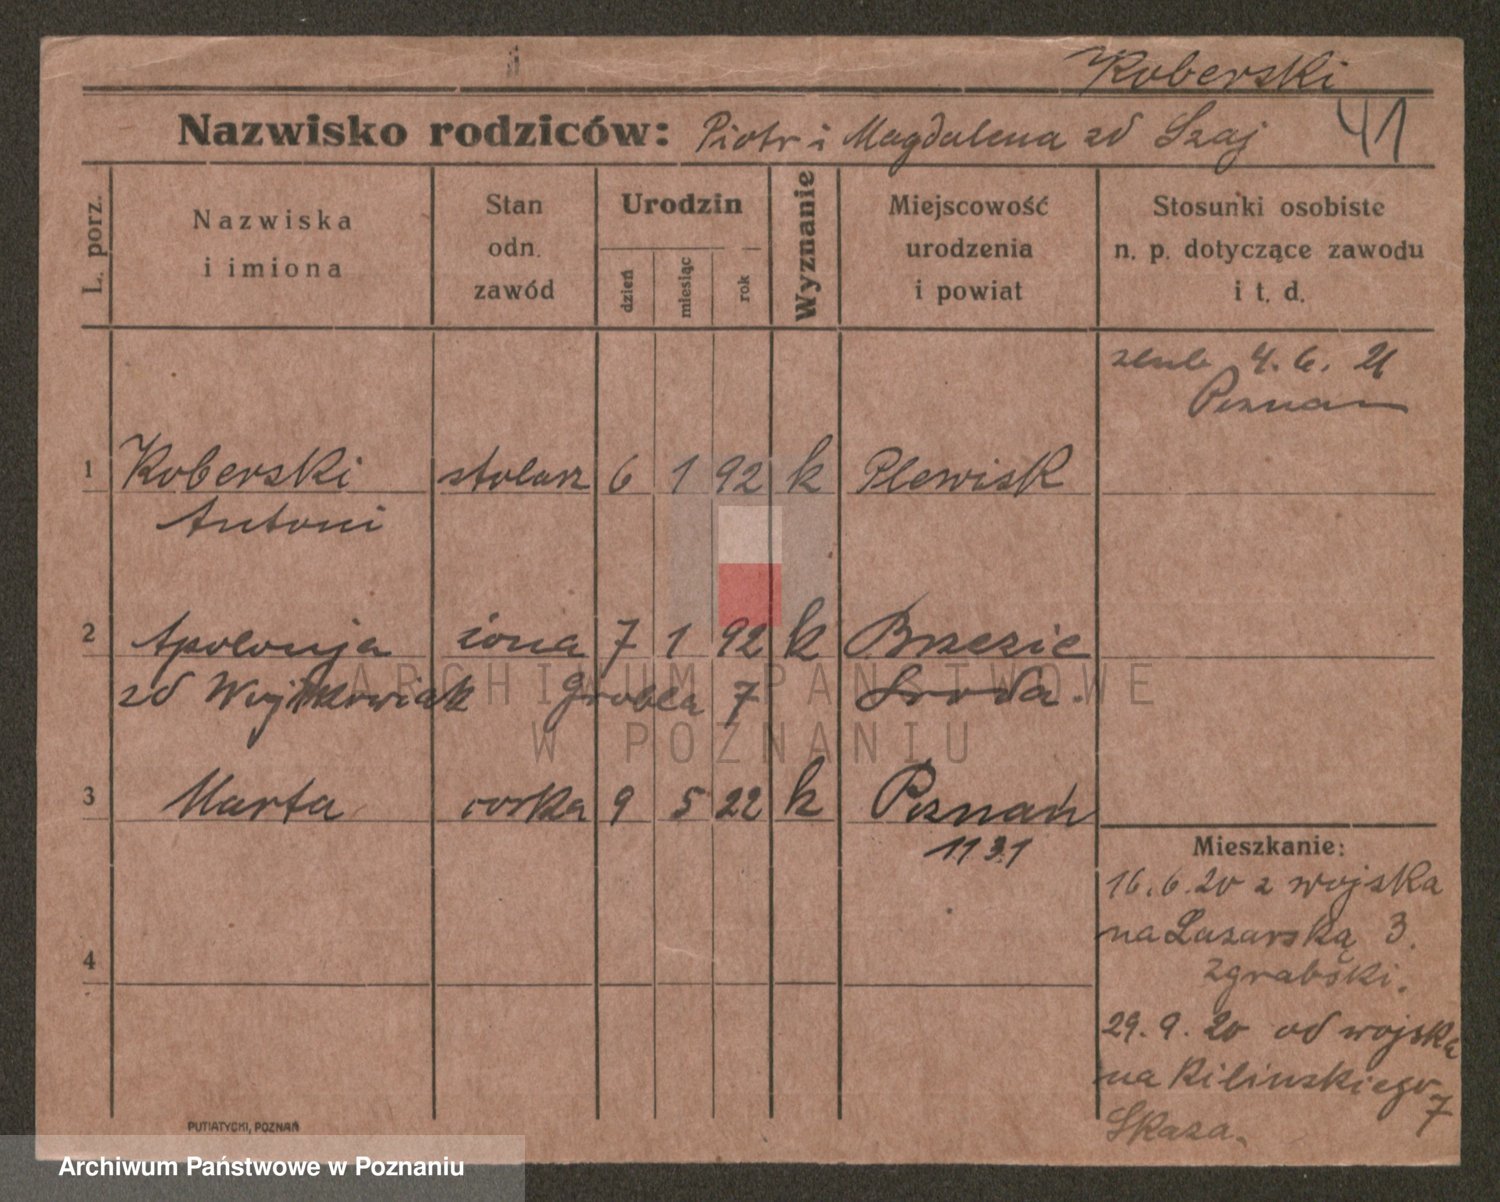 Koberski
Nazwisko rodziców: Piotr i Magdalena zd Szaj 41
L. porz.
Nazwiska
i imiona
Stan
odn.
zawód
Urodzin
dzień
miesiąc
rok
Wyznanie
Miejscowość
urodzenia
i powiat
Stosunki osobiste
n. p. dotyczące zawodu
i t. d.
4. 6. 21
Poznan
1 Koberski stolarz 6 1 92 k Plewisk
Antoni
2 Apolonja żona 7 1 92 k Brzezie
zd Wojtkowiak Grobla 7 Sroda.
3 Marta corka 9 5 22 k Poznań
1131
4
Mieszkanie:
16. 6. 20 z wojska
na Lazarską 3.
Zgrabski.
29. 9. 20 od wojska
na Kilinskiego 7
Skaza.
PUTIATYCKI, POZNAŃ
ARCHIWUM PAŃSTWOWE
W POZNANIU
Archiwum Państwowe w Poznaniu